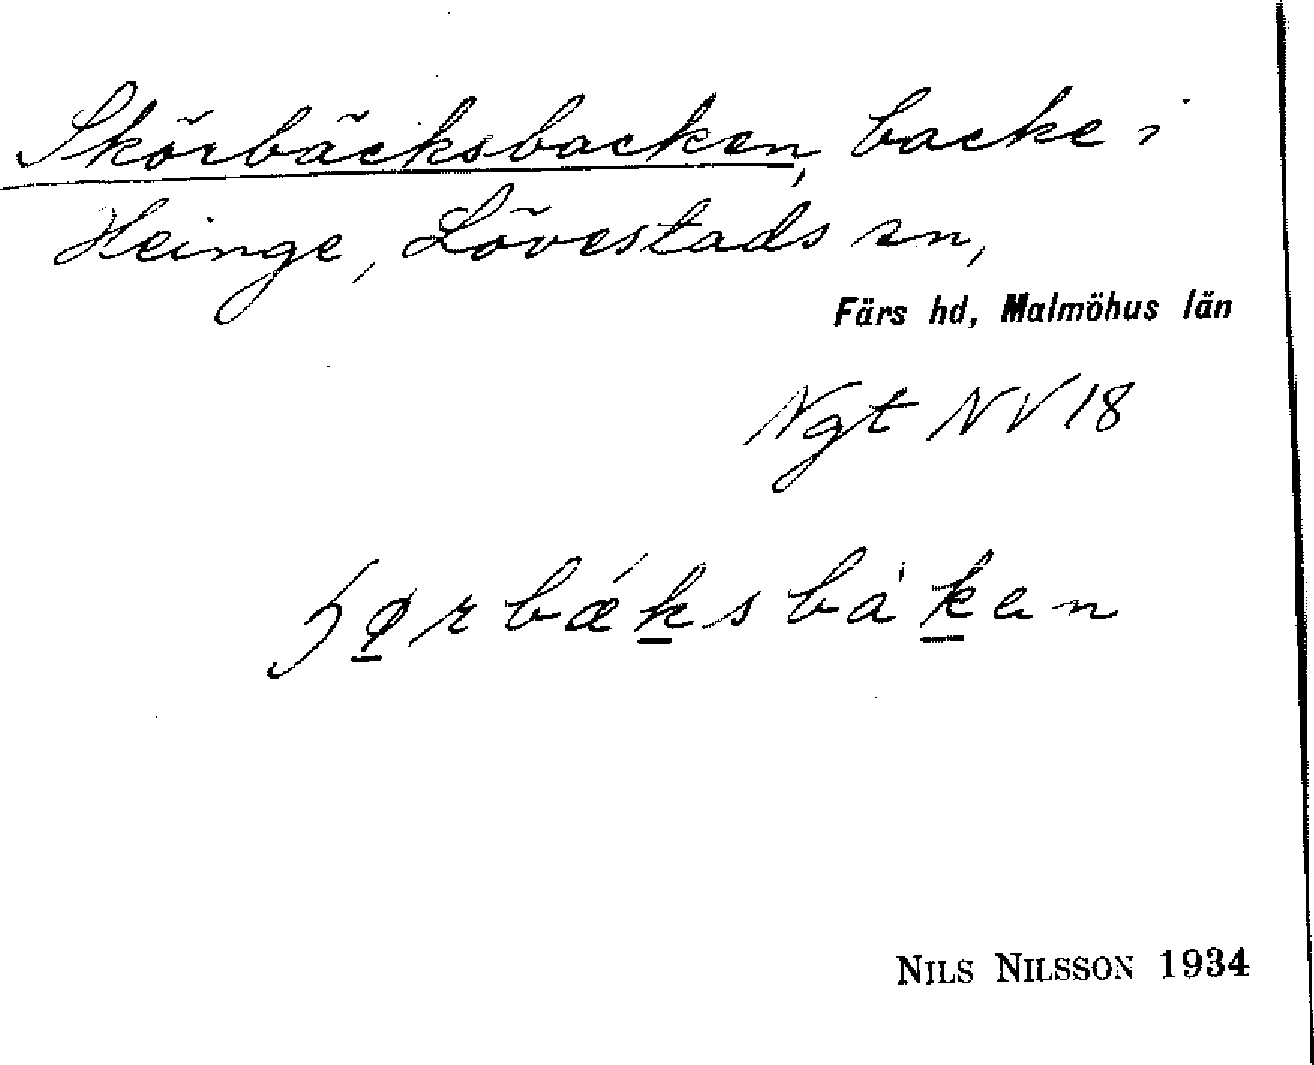 Skörbäcksbacken, backe i
Heinge, Lövestads sn,
Färs hd, Malmöhus län
Ngt NV 18
ʃø̱rbǽḵsbàḵen
NILS NILSSON 1934